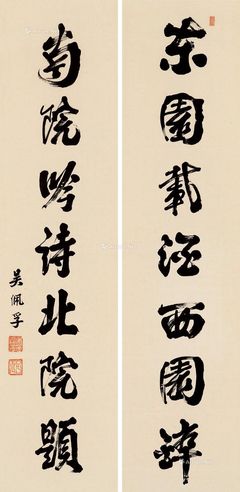 东園載酒西園醉
南院吟诗北院題
吴佩孚